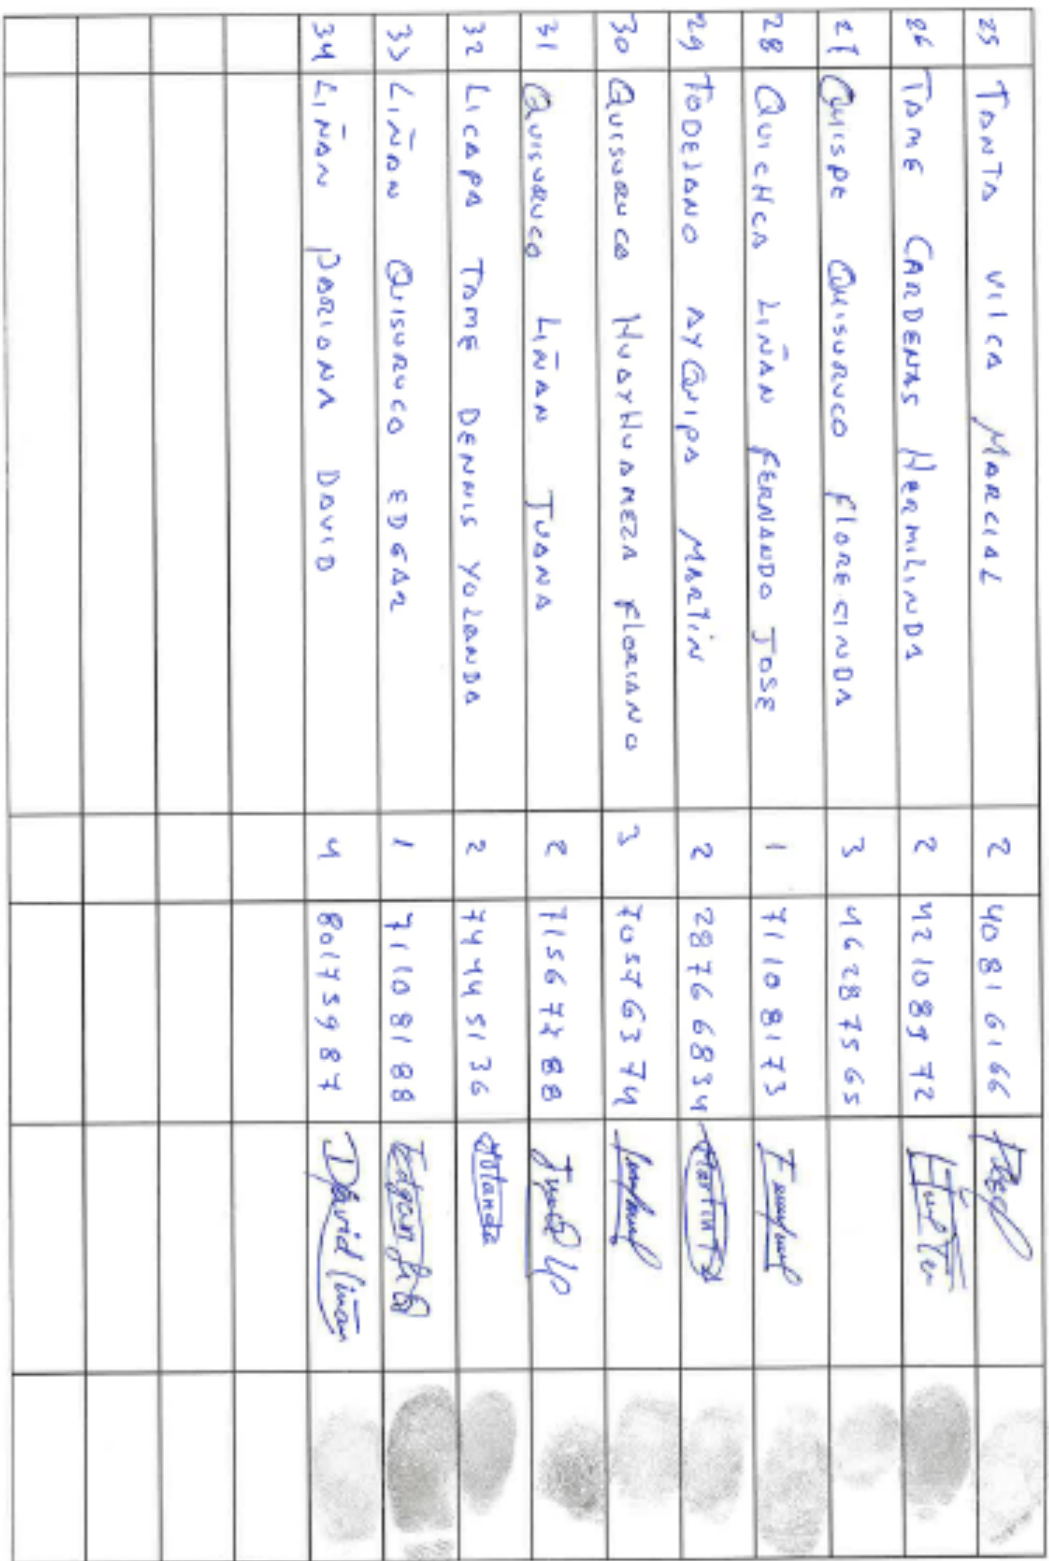 25 TANTA VILCA MARCIAL 2 40816166
26 TAME CARDENAS HERMILINDA 2 42108972
27 QUISPE QUISURUCO FLORECINDA 3 46287565
28 QUICHCA LIÑAN FERNANDO JOSE 1 71108173
29 TODELANO AYQUIPA MARTIN 2 28766834 Martin
30 QUISURUCO HUAYHUAMEZA FLORIANO 3 70576374
31 QUISURUCO LIÑAN JUANA 2 71567288
32 LICAPA TAME DENNIS YOLANDA 2 74445136 Yolanda
33 LIÑAN QUISURUCO EDGAR 1 71108188 Edgar
34 LIÑAN PARIONA DAVID 4 80175987 David Liñan